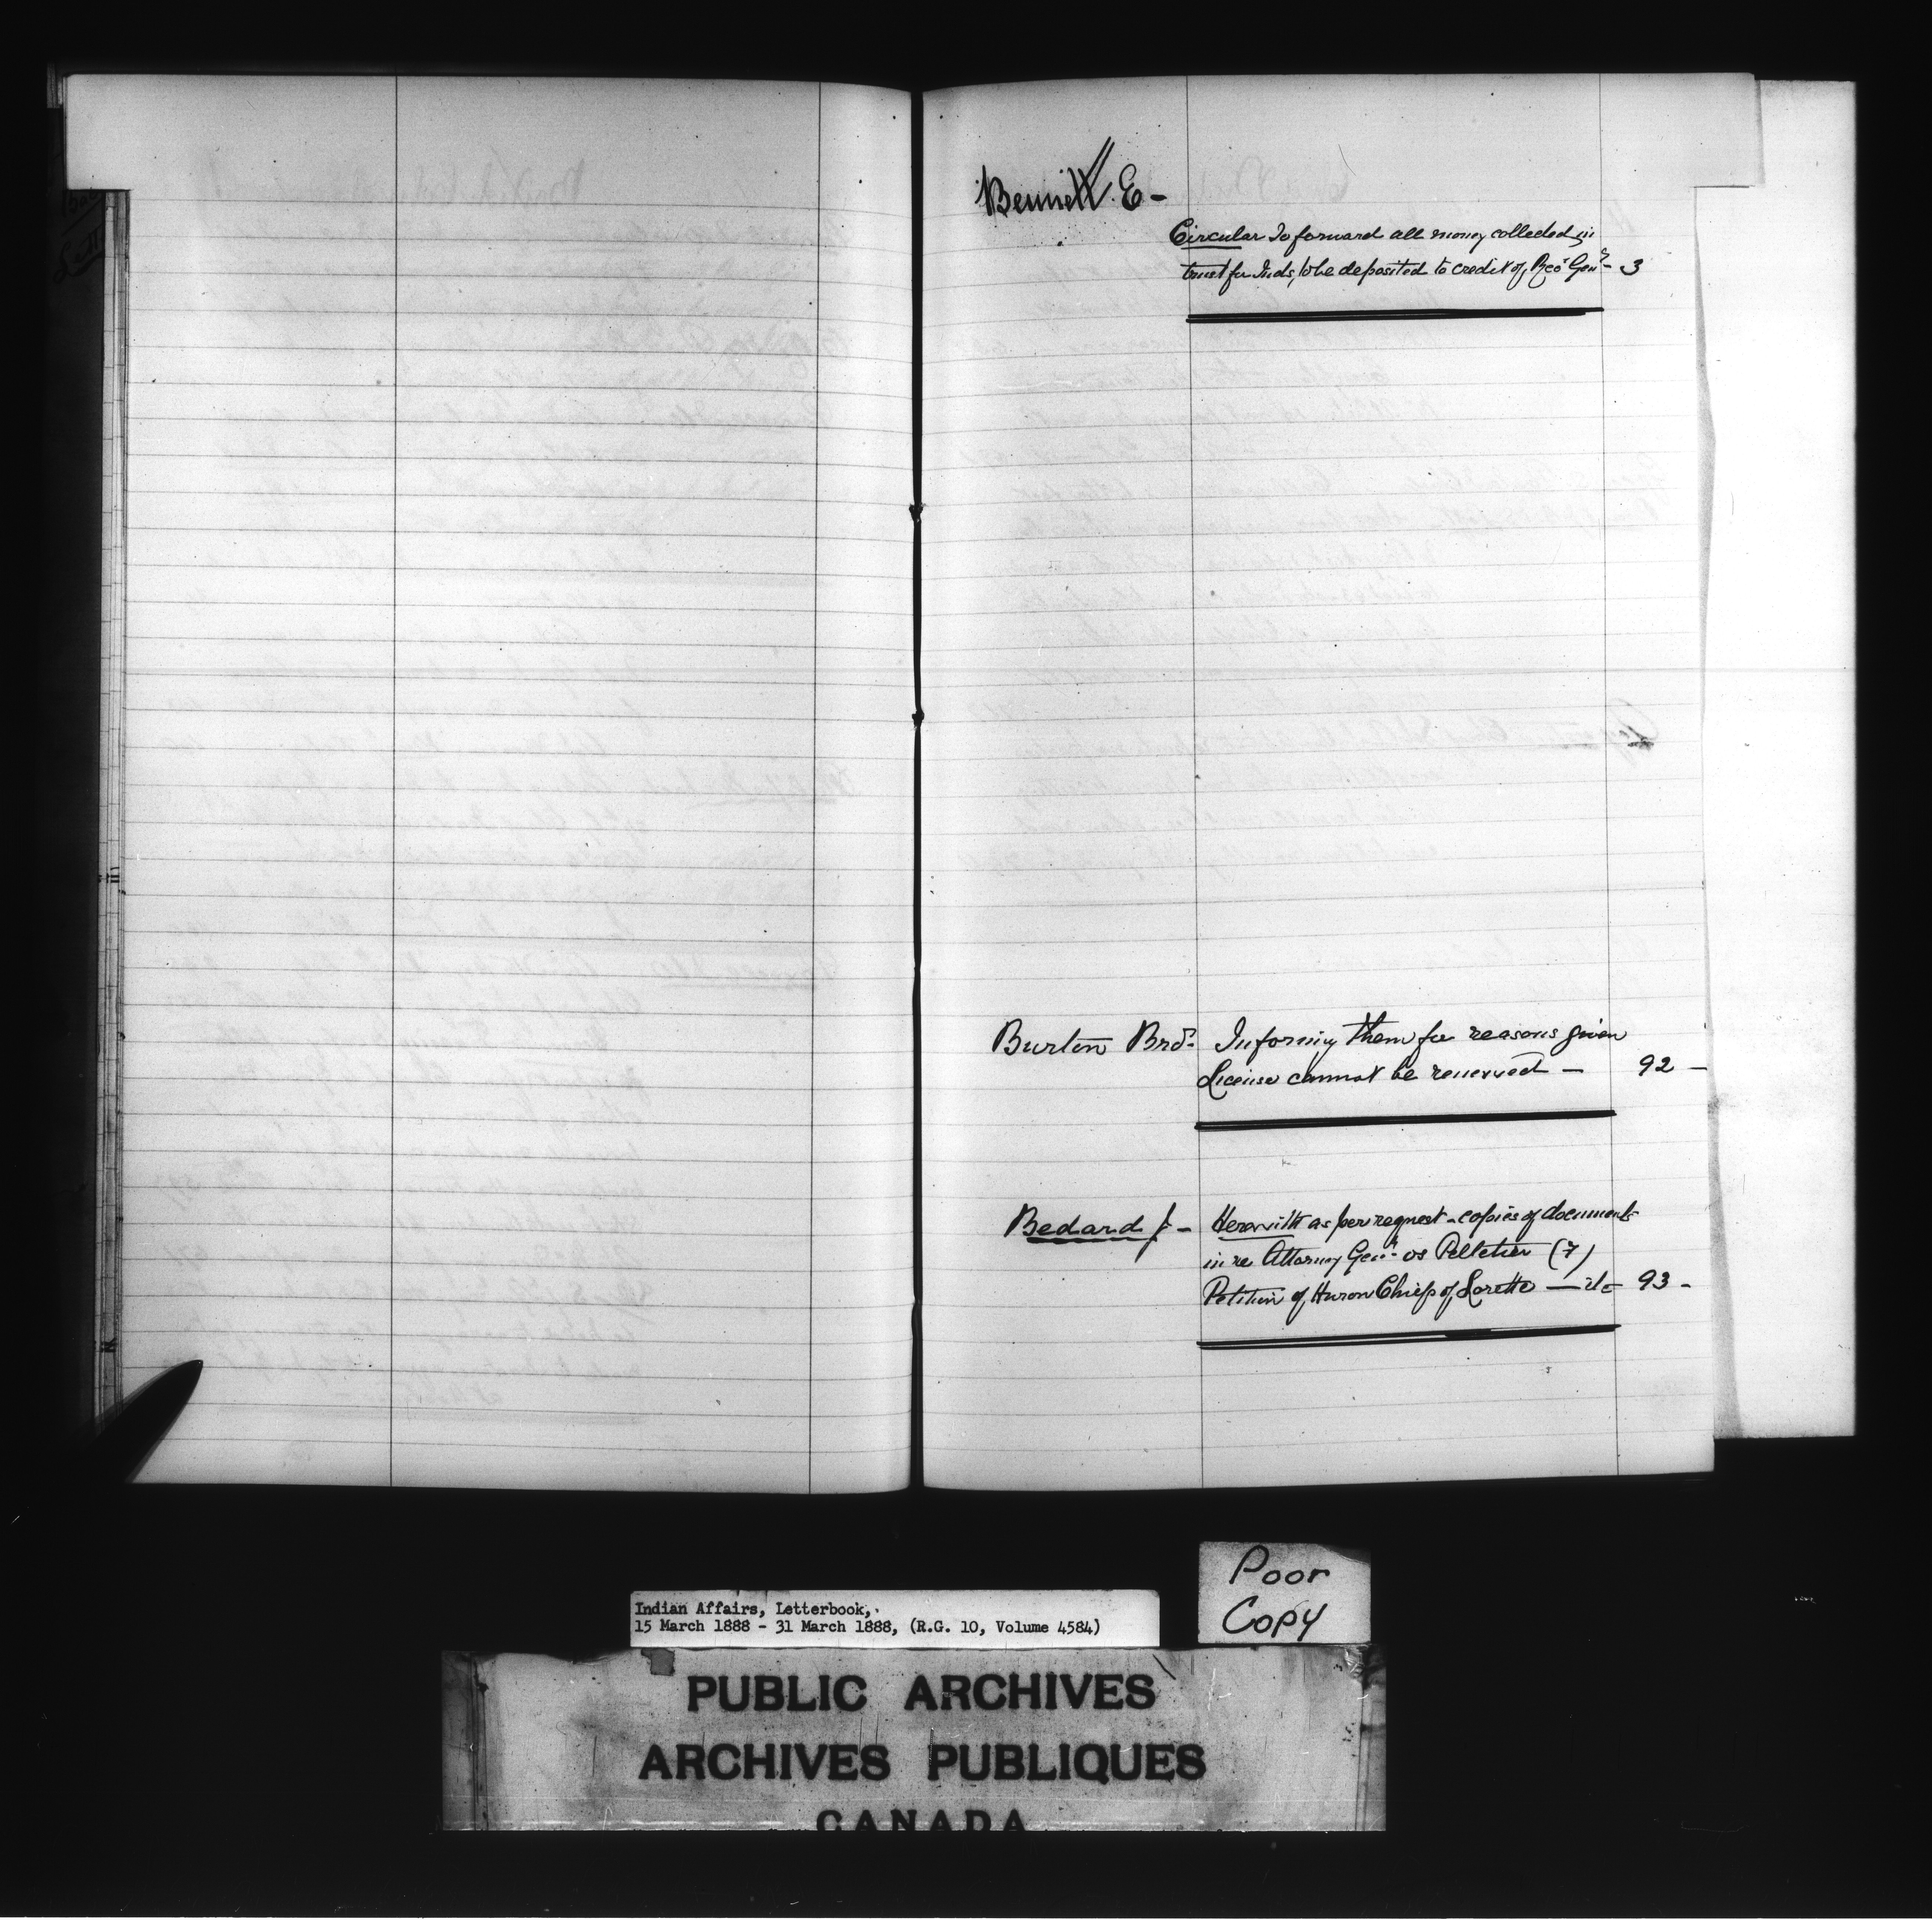 Bennett. E -
Circular To forward all money collected in
trust for Inds, to be deposited to credit of Rec^r Gen^l - 3
Burton Bro^s. Informing them for reasons given
License cannot be renewed — 92 -
Bedard J - Herewith as per request - copies of documents
in re Attorney Gen^l. vs Pelletier (7)
Petition of Huron Chiefs of Lorette — 93 -
Poor
Copy
Indian Affairs, Letterbook,
15 March 1888 - 31 March 1888, (R.G. 10, Volume 4584)
PUBLIC ARCHIVES
ARCHIVES PUBLIQUES
CANADA